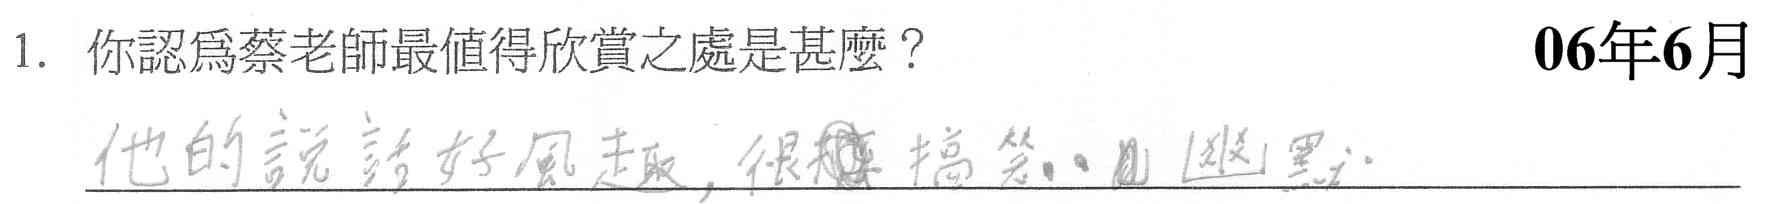 1. 你認為蔡老師最值得欣賞之處是甚麼？ 06年6月
他的說話好風趣，很搞笑..且幽默.